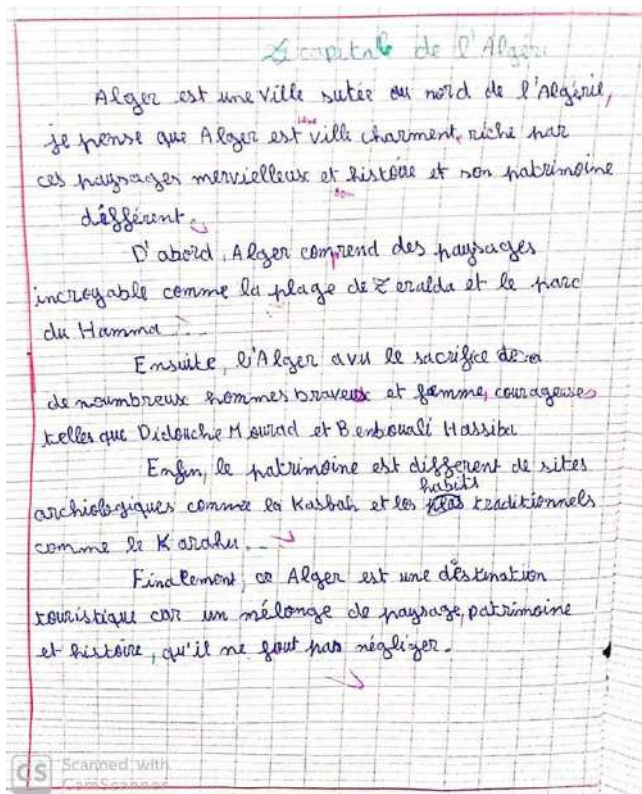 capitale de l'Algérie
Alger est une ville sutée au nord de l'Algérie,
je pense que Alger est une ville charment, riche par
ces paysages mervielleux et son histoire et son patrimoine
défférent.
D'abord, Alger comprend des paysages
incroyable comme la plage de Zeralda et le parc
du Hamma...
Ensuite, l'Alger a vu le sacrifice
de noumbreux hommes braves et femme, courageuses
telles que Didouche Mourad et Benbouali Hassiba
Enfin, le patrimoine est différent de sites
archiologiques comme la Kasbah et les habits traditionnels
comme le Karahu...
Finalement, Alger est une déstination
touristique car un mélonge de paysage, patrimoine
et histoire, qu'il ne faut pas négliger.
CS Scanned with
CamScanner